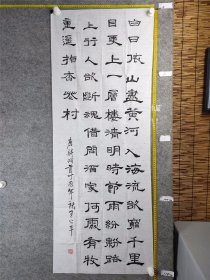 白日依山盡黄河入海流欲窮千里
目更上一層樓清明時節雨紛紛路
上行人欲斷魂借問酒家何處有牧
童遥指杏花村